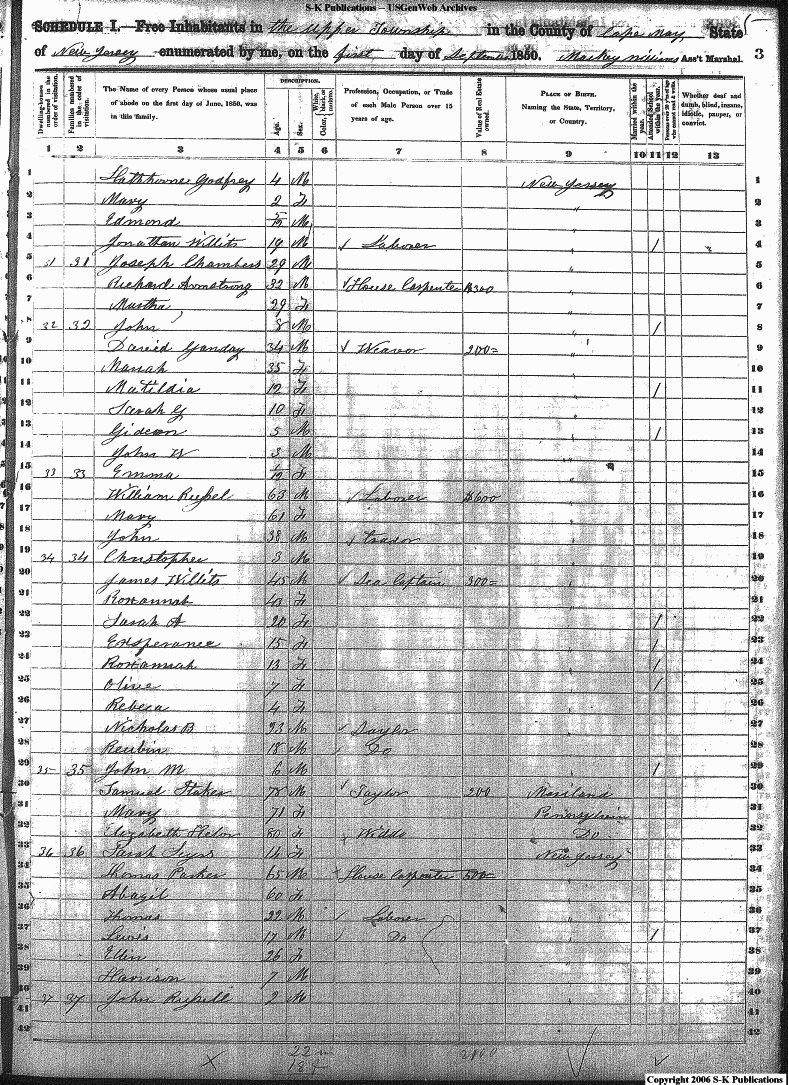 S-K Publications – USGenWeb Archives
SCHEDULE I.—Free Inhabitants in the Upper Township in the County of Cape May State
of New Jersey enumerated by me, on the first day of September 1850. Mackey Williams Ass't Marshal. 3
Dwelling-houses numbered in the order of visitation. Families numbered in the order of visitation. The Name of every Person whose usual place of abode on the first day of June, 1850, was in this family. DESCRIPTION. Age. Sex. Color, White, black, or mulatto. Profession, Occupation, or Trade of each Male Person over 15 years of age. Value of Real Estate owned. PLACE OF BIRTH. Naming the State, Territory, or Country. Married within the year. Attended School within the year. Persons over 20 y'rs of age who cannot read & write. Whether deaf and dumb, blind, insane, idiotic, pauper, or convict.
1 2 3 4 5 6 7 8 9 10 11 12 13
1 Hathhorne Godfrey 4 M New Jersey 1
2 Mary 2 F " 2
3 Edmond 5/12 M " 3
4 Jonathan Willits 19 M Laborer " / 4
5 31 31 Joseph Chambers 29 M " 5
6 Richard Armstrong 32 M House Carpenter $300 " 6
7 Martha 29 F " 7
8 32 32 John 8 M " / 8
9 David Ganday 34 M Weavor 200= " 9
10 Manah 35 F " 10
11 Matildia 12 F " / 11
12 Sarah G 10 F " 12
13 Gideon 5 M " / 13
14 John W 3 M " 14
15 33 33 Emma 1/12 F " 15
16 William Russel 63 M Laborer $600 " 16
17 Mary 61 F " 17
18 John 38 M trador " 18
19 34 34 Christopher 3 M " 19
20 James Willits 45 M Sea Captain 300= " 20
21 Roxannah 43 F " 21
22 Sarah A 20 F " / 22
23 Exsperance 15 F " / 23
24 Roxannah 13 F " / 24
25 Olive 7 F " / 25
26 Rebeca 4 F " 26
27 Nicholas B 23 M Taylor " 27
28 Reubin 18 M Do " 28
29 35 35 John M 6 M " / 29
30 Samuel Stakes 78 M Taylor 200 Mariland 30
31 Mary 71 F Pennsylvania 31
32 Elizabeth 80 F Widdo Do 32
33 36 36 Sarah 14 F New Jersey 33
34 Thomas Parker 65 M House Carpenter 500= " 34
35 Abagil 60 F " 35
36 Thomas 22 M Laborer " 36
37 Lewis 17 M Do " / 37
38 Ellen 26 F " 38
39 Harrison 7 M " 39
40 37 37 John Russell 2 M " 40
41 41
42 42
22 m
18 f
Copyright 2006 S-K Publications